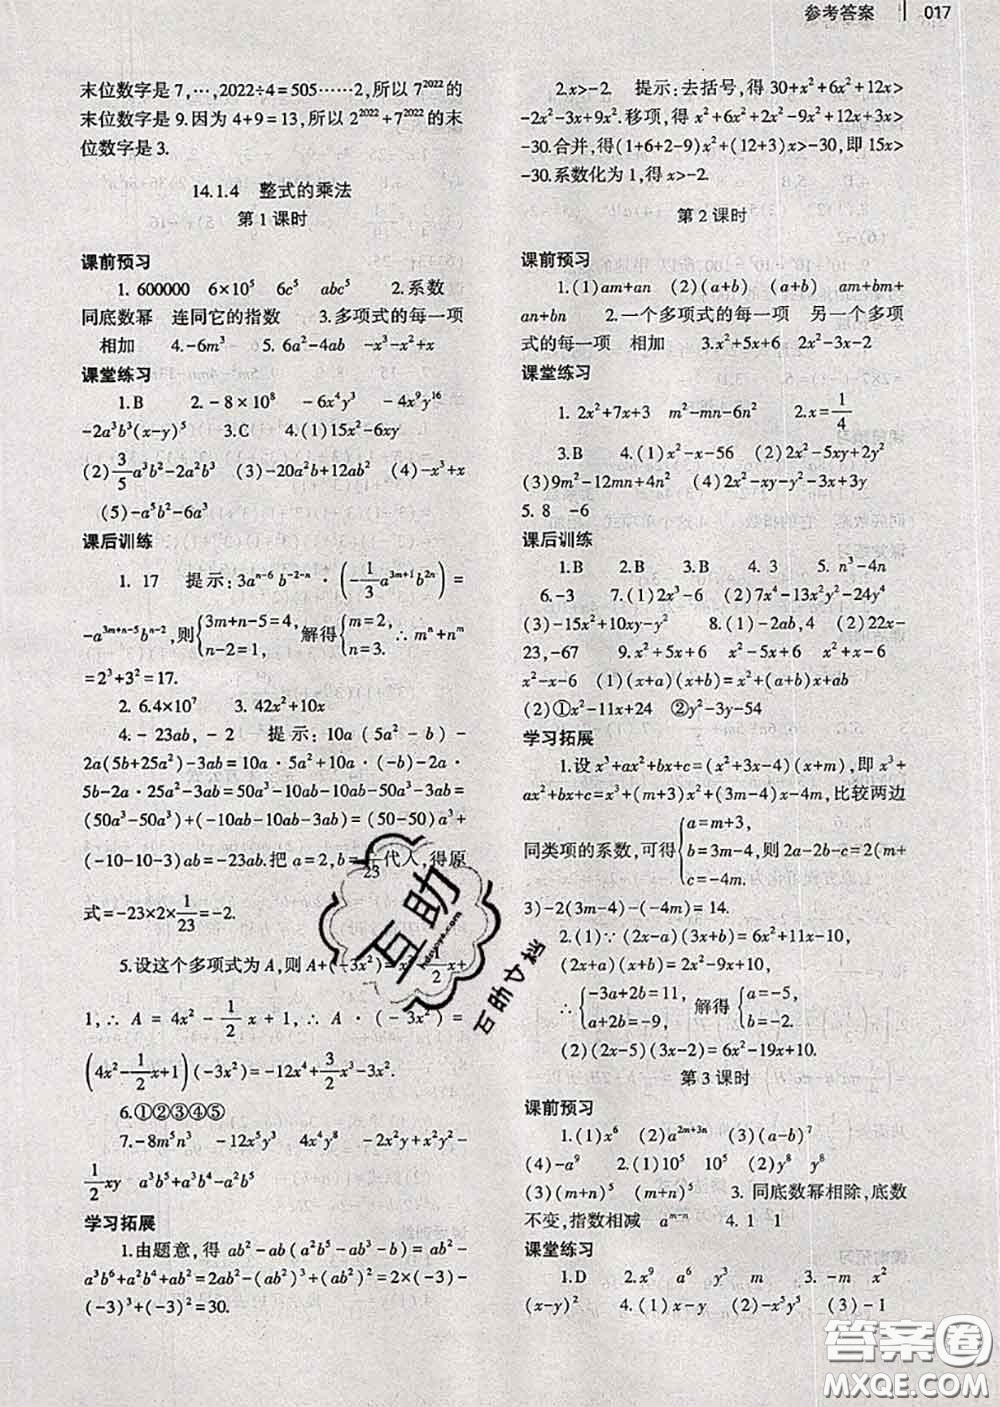 参考答案 017
末位数字是 7,…,2022÷4=505……2,所以 7²⁰²²的
末位数字是 9.因为 4+9=13,所以 2²⁰²²+7²⁰²²的末
位数字是 3.
14.1.4 整式的乘法
第 1 课时
课前预习
1. 600000 6×10⁵ 6c⁵ abc⁵ 2.系数
同底数幂 连同它的指数 3.多项式的每一项
相加 4.-6m³ 5. 6a²-4ab -x³-x²+x
课堂练习
1.B 2.-8×10⁸ -6x⁴y³ -4x⁹y¹⁶
-2a³b³(x-y)⁵ 3.C 4.(1)15x²-6xy
(2)3/5a³b²-2a²b³ (3)-20a²b+12ab² (4)-x³+x
(5)-a⁵b²-6a³
课后训练
1. 17 提示:3aⁿ⁻⁶b⁻²⁻ⁿ·(-1/3a³ᵐ⁺¹b²ⁿ)=
-a³ᵐ⁺ⁿ⁻⁵bⁿ⁻²,则{3m+n-5=4, n-2=1, 解得{m=2, n=3. ∴ mⁿ+nᵐ
=2³+3²=17.
2. 6.4×10⁷ 3. 42x²+10x
4.-23ab,-2 提示:10a(5a²-b)-
2a(5b+25a²)-3ab=10a·5a²+10a·(-b)-2a·
5b-2a·25a²-3ab=50a³-10ab-10ab-50a³-3ab=
(50a³-50a³)+(-10ab-10ab-3ab)=(50-50)a³+
(-10-10-3)ab=-23ab.把 a=2,b=1/23代入,得原
式=-23×2×1/23=-2.
5.设这个多项式为 A,则 A+(-3x²)=x²-1/2x+
1,∴ A=4x²-1/2x+1,∴ A·(-3x²)=
(4x²-1/2x+1)(-3x²)=-12x⁴+3/2x³-3x².
6.①②③④⑤
7.-8m⁵n³ -12x⁵y³ 4x⁴y⁸ -2x²y+2xy²-
1/2xy a³b⁵+a³b⁴-a²b³
学习拓展
1.由题意,得 ab²-ab(a²b⁵-ab³-b)=ab²-
a³b⁶+a²b⁴+ab²=2ab²-(ab²)³+(ab²)²=2×(-3)-
(-3)³+(-3)²=30.
2.x>-2. 提示:去括号,得 30+x²+6x²+12x>
-2x²-3x+9x².移项,得 x²+6x²+2x²-9x²+12x+3x>
-30.合并,得(1+6+2-9)x²+(12+3)x>-30,即 15x>
-30.系数化为 1,得 x>-2.
第 2 课时
课前预习
1.(1)am+an (2)(a+b) (a+b) am+bm+
an+bn 2.一个多项式的每一项 另一个多项
式的每一项 相加 3.x²+5x+6 2x²-3x-2
课堂练习
1. 2x²+7x+3 m²-mn-6n² 2.x=1/4
3.B 4.(1)x²-x-56 (2)2x²-5xy+2y²
(3)9m²-12mn+4n² (4)2x²-xy-y²-3x+3y
5. 8 -6
课后训练
1.B 2.B 3.B 4. 3 5. n³-4n
6.-3 7.(1)2x³-6 (2)7x⁴-13x²y²-24y⁴
(3)-15x²+10xy-y² 8.(1)-2ab,4 (2)22x-
23,-67 9.x²+5x+6 x²-5x+6 x²+x-6
x²-x-6 (1)(x+a)(x+b)=x²+(a+b)x+ab
(2)①x²-11x+24 ②y²-3y-54
学习拓展
1.设 x³+ax²+bx+c=(x²+3x-4)(x+m),即 x³+
ax²+bx+c=x³+(m+3)x²+(3m-4)x-4m,比较两边
同类项的系数,可得{a=m+3, b=3m-4, c=-4m. 则 2a-2b-c=2(m+
3)-2(3m-4)-(-4m)=14.
2.(1)∵(2x-a)(3x+b)=6x²+11x-10,
(2x+a)(x+b)=2x²-9x+10,
∴{-3a+2b=11, a+2b=-9, 解得{a=-5, b=-2.
(2)(2x-5)(3x-2)=6x²-19x+10.
第 3 课时
课前预习
1.(1)x⁶ (2)a²ᵐ⁺³ⁿ (3)(a-b)⁷
(4)-a⁹ 2.(1)10⁵ 10⁵ (2)y⁸ y⁸
(3)(m+n)⁵ (m+n)⁵ 3. 同底数幂相除,底数
不变,指数相减 aᵐ⁻ⁿ 4. 1 1
课堂练习
1.D 2.x⁹ a⁶ y³ m 3.-m x²
(x-y)² 4.(1)x-y (2)-x⁵y⁵ (3)-1
互助
互助文库
答案圈
MXQE.COM